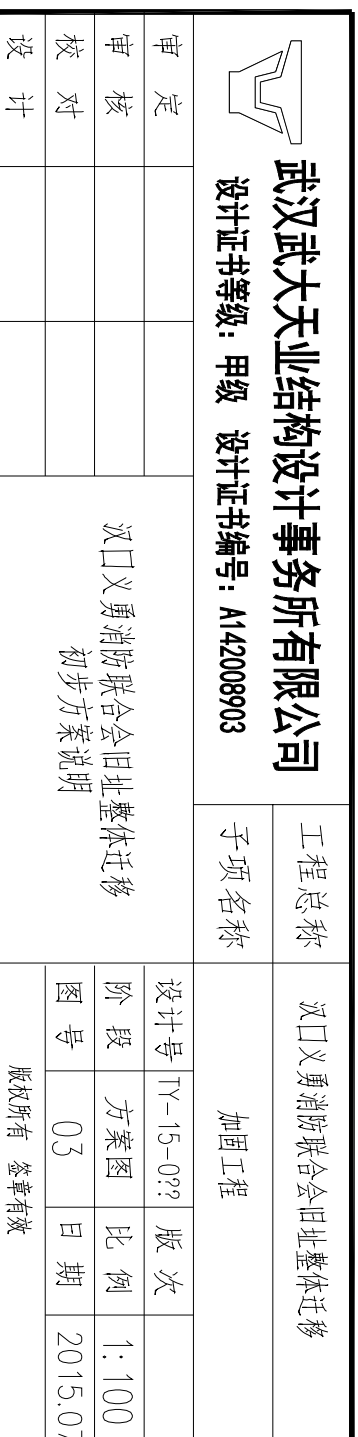 武汉武大天业结构设计事务所有限公司
设计证书等级：甲级 设计证书编号：A142008903
工程总称
汉口义勇消防联合会旧址整体迁移
子项名称
加固工程
审 定
审 核
校 对
设 计
汉口义勇消防联合会旧址整体迁移
初步方案说明
设计号 TY-15-0?? 版 次
阶 段 方案图 比 例 1:100
图 号 03 日 期 2015.07
版权所有 签章有效